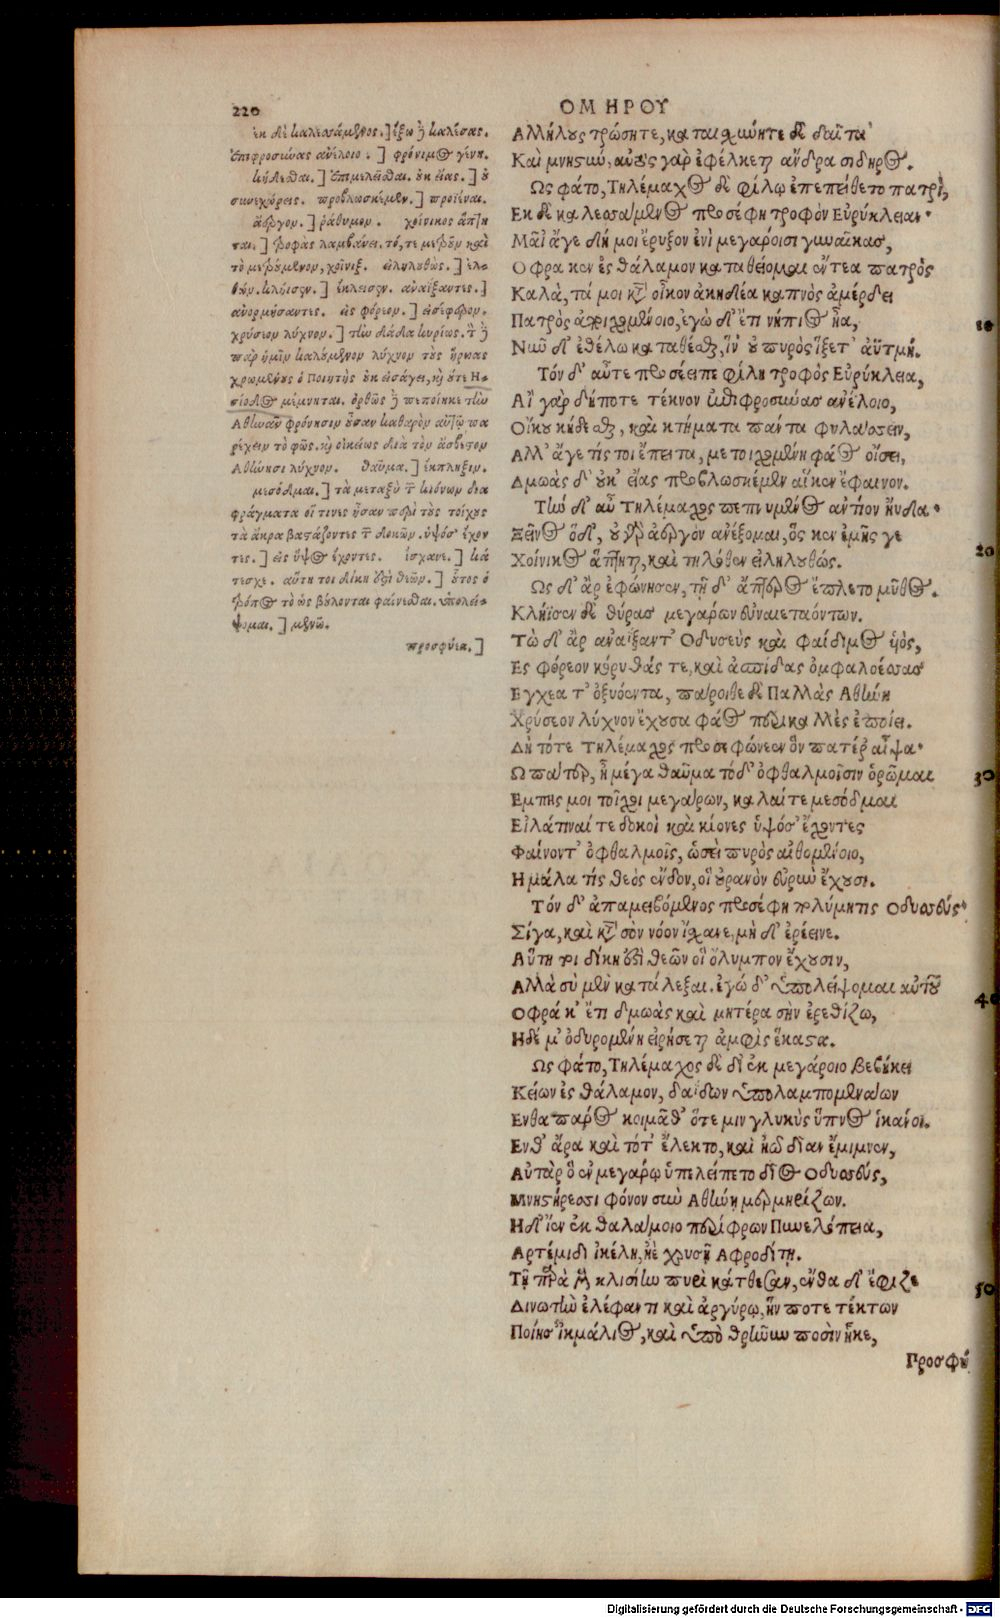 220
ΟΜΗΡΟΥ
ἐκ δὲ καλεσάμενος.] ἔξω ἢ καλέσας.
ἐπιφροσύνας ἀνέλοιο.] φρόνιμος γένη.
κήδεσθαι.] ἐπιμελεῖσθαι. οὐκ εἴας.] οὐ
συνεχώρεις. προβλωσκέμεν.] προϊέναι.
ἀεργόν.] ῥάθυμον. χοίνικος ἅπτη
ται.] τροφὰς λαμβάνει. τό, τε μετροῦν καὶ
τὸ μετρούμενον, χοῖνιξ. εἰληλουθώς.] ἐλ-
θών. κλήϊσεν.] ἔκλεισεν. ἀναΐξαντες.]
ἀνορμήσαντες. ἐς φόρεον.] εἰσέφερον.
χρύσεον λύχνον.] τὴν δᾷδα κυρίως. τὸν δὲ
παρ' ἡμῖν καλούμενον λύχνον τοὺς ἥρωας
χρωμένους ὁ Ποιητὴς οὐκ εἰσάγει, καὶ οὔτε Ἡ-
σίοδος μέμνηται. ὀρθῶς δὲ πεποίηκε τὴν
Ἀθηνᾶν φρόνησιν οὖσαν καθαρὸν αὐτῷ πα
ρέχειν τὸ φῶς. καὶ οἰκείως διὰ τὸν ἄσβεστον
Ἀθήνησι λύχνον. θαῦμα.] ἔκπληξιν.
μεσόδμαι.] τὰ μεταξὺ τῶν κιόνων δια
φράγματα οἵ τινες ἦσαν περὶ τοὺς τοίχους
τὰ ἄκρα βαστάζοντες τῶν δοκῶν. ὑψόσ' ἔχον
τες.] εἰς ὕψος ἔχοντες. ἴσχανε.] κά
τεσχε. αὕτη τοι δίκη ἐστὶ θεῶν.] οὗτος ὁ
τρόπος τὸ ὡς βούλονται φαίνεσθαι. ὑπολεί-
ψομαι.] μενῶ.
προσφύεα.]
Αλλήλους τρώσητε, καταισχύνητε δὲ δαῖτα
Καὶ μνηστύν, αὐτὸς γὰρ ἐφέλκεται ἄνδρα σίδηρος.
Ως φάτο, Τηλέμαχος δὲ φίλῳ ἐπεπείθετο πατρί,
Εκ δὲ καλεσάμενος προσέφη τροφὸν Εὐρύκλειαν·
Μαῖ' ἄγε δή μοι ἔρυξον ἐνὶ μεγάροισι γυναῖκας,
Οφρα κεν ἐς θάλαμον καταθείομαι ἔντεα πατρὸς
Καλὰ, τά μοι κατ' οἶκον ἀκηδέα καπνὸς ἀμέρδει
Πατρὸς ἀποιχομένοιο, ἐγὼ δ' ἔτι νήπιος ἦα,
Νῦν δ' ἐθέλω καταθέσθαι, ἵν' οὐ πυρὸς ἵξετ' ἀϋτμή.
Τόν δ' αὖτε προσέειπε φίλη τροφὸς Εὐρύκλεια,
Αἲ γὰρ δήποτε τέκνον ἐπιφροσύνας ἀνέλοιο,
Οἴκου κήδεσθαι, καὶ κτήματα πάντα φυλάσσειν,
Αλλ' ἄγε τίς τοι ἔπειτα, μετοιχομένη φάος οἴσει,
Δμωὰς δ' οὐκ εἴας προβλωσκέμεν αἵ κεν ἔφαινον.
Τὴν δ' αὖ Τηλέμαχος πεπνυμένος ἀντίον ηὔδα·
Ξεῖνος ὅδ', οὐ γὰρ ἀεργὸν ἀνέξομαι, ὅς κεν ἐμῆς γε
Χοίνικος ἅπτηται, καὶ τηλόθεν εἰληλουθώς.
Ως ἄρ' ἐφώνησεν, τῇ δ' ἄπτερος ἔπλετο μῦθος.
Κλήϊσεν δὲ θύρας μεγάρων εὐναιεταόντων.
Τὼ δ' ἂρ ἀναΐξαντ' Οδυσεὺς καὶ φαίδιμος υἱός,
Ες φόρεον κόρυθάς τε, καὶ ἀσπίδας ὀμφαλοέσσας
Εγχεα τ' ὀξυόεντα, πάροιθε δὲ Παλλὰς Αθήνη
Χρύσεον λύχνον ἔχουσα φάος περικαλλὲς ἐποίει.
Δὴ τότε Τηλέμαχος προσεφώνεεν ὃν πατέρ' αἶψα·
Ω πάτερ, ἦ μέγα θαῦμα τόδ' ὀφθαλμοῖσιν ὁρῶμαι
Εμπης μοι τοῖχοι μεγάρων, καλαί τε μεσόδμαι
Εἰλάτιναί τε δοκοὶ καὶ κίονες ὑψόσ' ἔχοντες
Φαίνοντ' ὀφθαλμοῖς, ὡσεὶ πυρὸς αἰθομένοιο,
Η μάλα τίς θεὸς ἔνδον, οἳ οὐρανὸν εὐρὺν ἔχουσι.
Τόν δ' ἀπαμειβόμενος προσέφη πολύμητις Οδυσσεύς·
Σίγα, καὶ κατὰ σὸν νόον ἴσχανε, μὴ δ' ἐρέεινε.
Αὕτη τοι δίκη ἐστὶ θεῶν οἳ ὄλυμπον ἔχουσιν,
Αλλὰ σὺ μὲν κατάλεξαι. ἐγὼ δ' ὑπολείψομαι αὐτοῦ
Οφρά κ' ἔτι δμωὰς καὶ μητέρα σὴν ἐρεθίζω,
Ηδέ μ' ὀδυρομένη εἰρήσεται ἀμφὶς ἕκαστα.
Ως φάτο, Τηλέμαχος δὲ δι' ἐκ μεγάροιο βεβήκει
Κείων ἐς θάλαμον, δαΐδων ὑπολαμπομενάων
Ενθα πάρος κοιμᾶθ' ὅτε μιν γλυκὺς ὕπνος ἱκάνοι.
Ενθ' ἄρα καὶ τότ' ἔλεκτο, καὶ ἠῶ δῖαν ἔμιμνεν,
Αὐτὰρ ὁ ἐν μεγάρῳ ὑπελείπετο δῖος Οδυσσεύς,
Μνηστήρεσσι φόνον σὺν Αθήνῃ μερμηρίζων.
Η δ' ἴεν ἐκ θαλάμοιο περίφρων Πηνελόπεια,
Αρτέμιδι ἰκέλη, ἠὲ χρυσῇ Αφροδίτῃ.
Τῇ παρὰ μὲν κλισίην πυρὶ κάτθεσαν, ἔνθα δ' ἔφιζε
Δινωτὴν ἐλέφαντι καὶ ἀργύρῳ, ἥν ποτε τέκτων
Ποίησ' Ἰκμάλιος, καὶ ὑπὸ θρῆνυν ποσὶν ἧκε,
10
20
30
40
50
Προσφυ
Digitalisierung gefördert durch die Deutsche Forschungsgemeinschaft - DFG